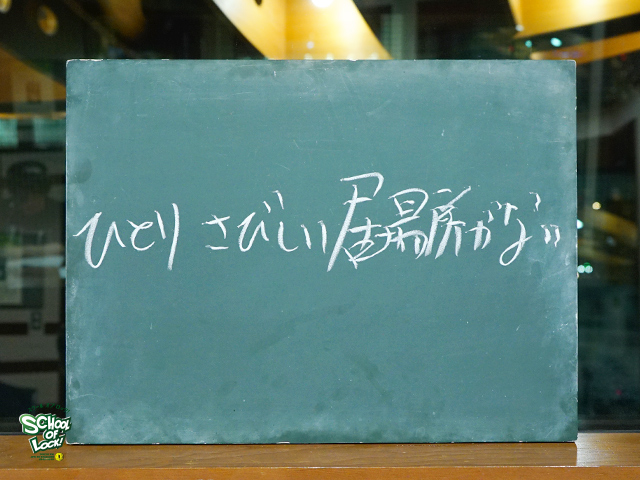 ひとり さびしい 居場所がない
SCHOOL
OF
LOCK!